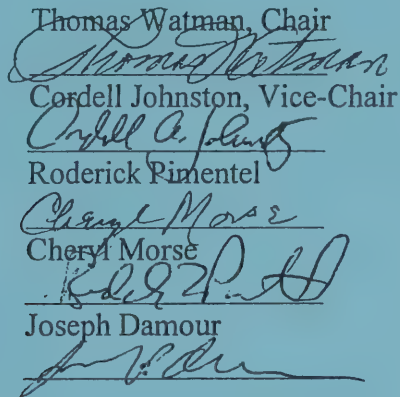 Thomas Watman, Chair
Thomas Watman
Cordell Johnston, Vice-Chair
Cordell A. Johnston
Roderick Pimentel
Cheryl Morse
Cheryl Morse
Joseph Damour